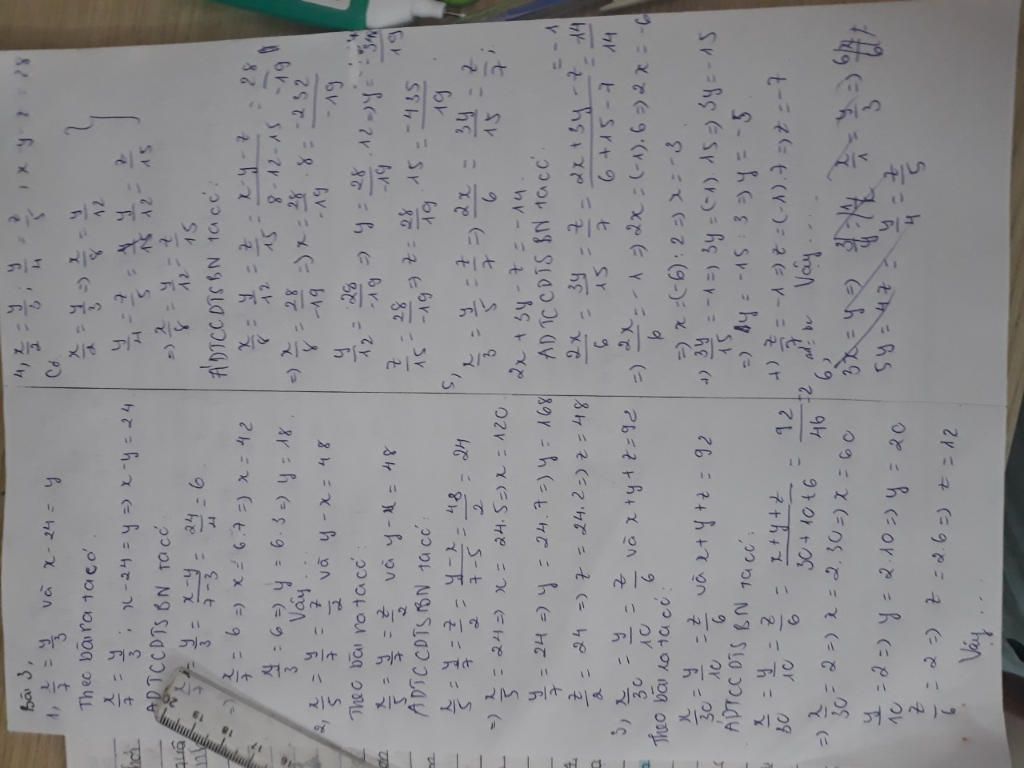 Bài 3,
1, x/7 = y/3 và x - 24 = y
Theo bài ra ta có:
x/7 = y/3 ; x - 24 = y => x - y = 24
ADTCCDTSBN ta có:
x/7 = y/3 = x-y/7-3 = 24/4 = 6
=> x/7 = 6 => x = 6.7 => x = 42
y/3 = 6 => y = 6.3 => y = 18.
Vậy...
2, x/5 = y/7 = z/2 và y - x = 48
Theo bài ra ta có:
x/5 = y/7 = z/2 và y - x = 48
ADTCCDTSBN ta có:
x/5 = y/7 = z/2 = y-x/7-5 = 48/2 = 24
=> x/5 = 24 => x = 24.5 => x = 120
y/7 = 24 => y = 24.7 => y = 168
z/2 = 24 => z = 24.2 => z = 48
3, x/30 = y/10 = z/6 và x+y+z = 92
Theo bài ra ta có:
x/30 = y/10 = z/6 và x+y+z = 92
ADTCCDTSBN ta có:
x/30 = y/10 = z/6 = x+y+z/30+10+6 = 92/46 = 2
=> x/30 = 2 => x = 2.30 => x = 60
y/10 = 2 => y = 2.10 => y = 20
z/6 = 2 => z = 2.6 => z = 12
Vậy...
4, x/2 = y/3 ; y/4 = z/5 ; x y - z = 28
Có
x/2 = y/3 => x/8 = y/12
y/4 = z/5 = y/12 = z/15
=> x/8 = y/12 = z/15
ADTCCDTSBN ta có:
x/8 = y/12 = z/15 = x-y-z/8-12-15 = 28/-19
=> x/8 = 28/-19 => x = 28/-19 . 8 = -232/-19
y/12 = 28/-19 => y = 28/-19 . 12 => y =
z/15 = 28/-19 => z = 28/19 . 15 = -435/19
5, x/3 = y/5 = z/7 => 2x/6 = 3y/15 = z/7 ;
2x + 3y - z = -14.
ADTCCDTSBN ta có:
2x/6 = 3y/15 = z/7 = 2x+3y-z/6+15-7 = -14/14 = -1
=> 2x/6 = -1 => 2x = (-1).6 => 2x = -6
=> x = (-6) : 2 => x = -3
+) 3y/15 = -1 => 3y = (-1).15 => 3y = -15
=> y = -15 : 3 => y = -5
+) z/7 = -1 => z = (-1).7 => z = -7
Vậy....
6,
3x = y => x/1 = y/3 =>
5y = 4z = y/4 = z/5